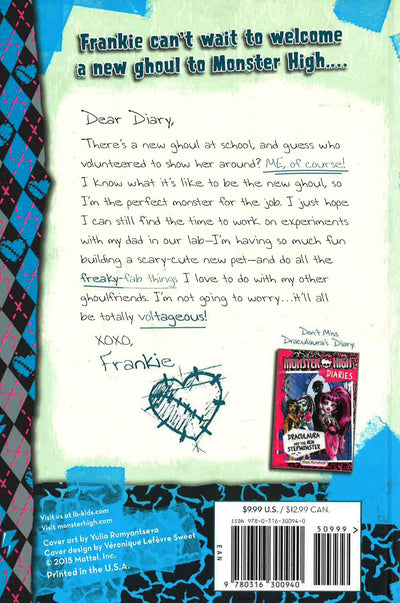 Frankie can't wait to welcome
a new ghoul to Monster High....
Dear Diary,
There's a new ghoul at school, and guess who
volunteered to show her around? ME, of course!
I know what it's like to be the new ghoul, so
I'm the perfect monster for the job. I just hope
I can still find the time to work on experiments
with my dad in our lab—I'm having so much fun
building a scary-cute new pet—and do all the
freaky-fab things I love to do with my other
ghoulfriends. I'm not going to worry...it'll all
be totally voltageous!
XOXO,
Frankie
Don't Miss
Draculaura's Diary:
MONSTER HIGH
DIARIES
DRACULAURA
AND THE NEW
STEPMOMSTER
Visit us at lb-kids.com
Visit monsterhigh.com
Cover art by Yulia Rumyantseva
Cover design by Véronique Lefèvre Sweet
© 2015 Mattel, Inc.
Printed in the U.S.A.
$9.99 U.S. / $12.99 CAN.
ISBN 978-0-316-30094-0
50999
EAN
9 780316 300940